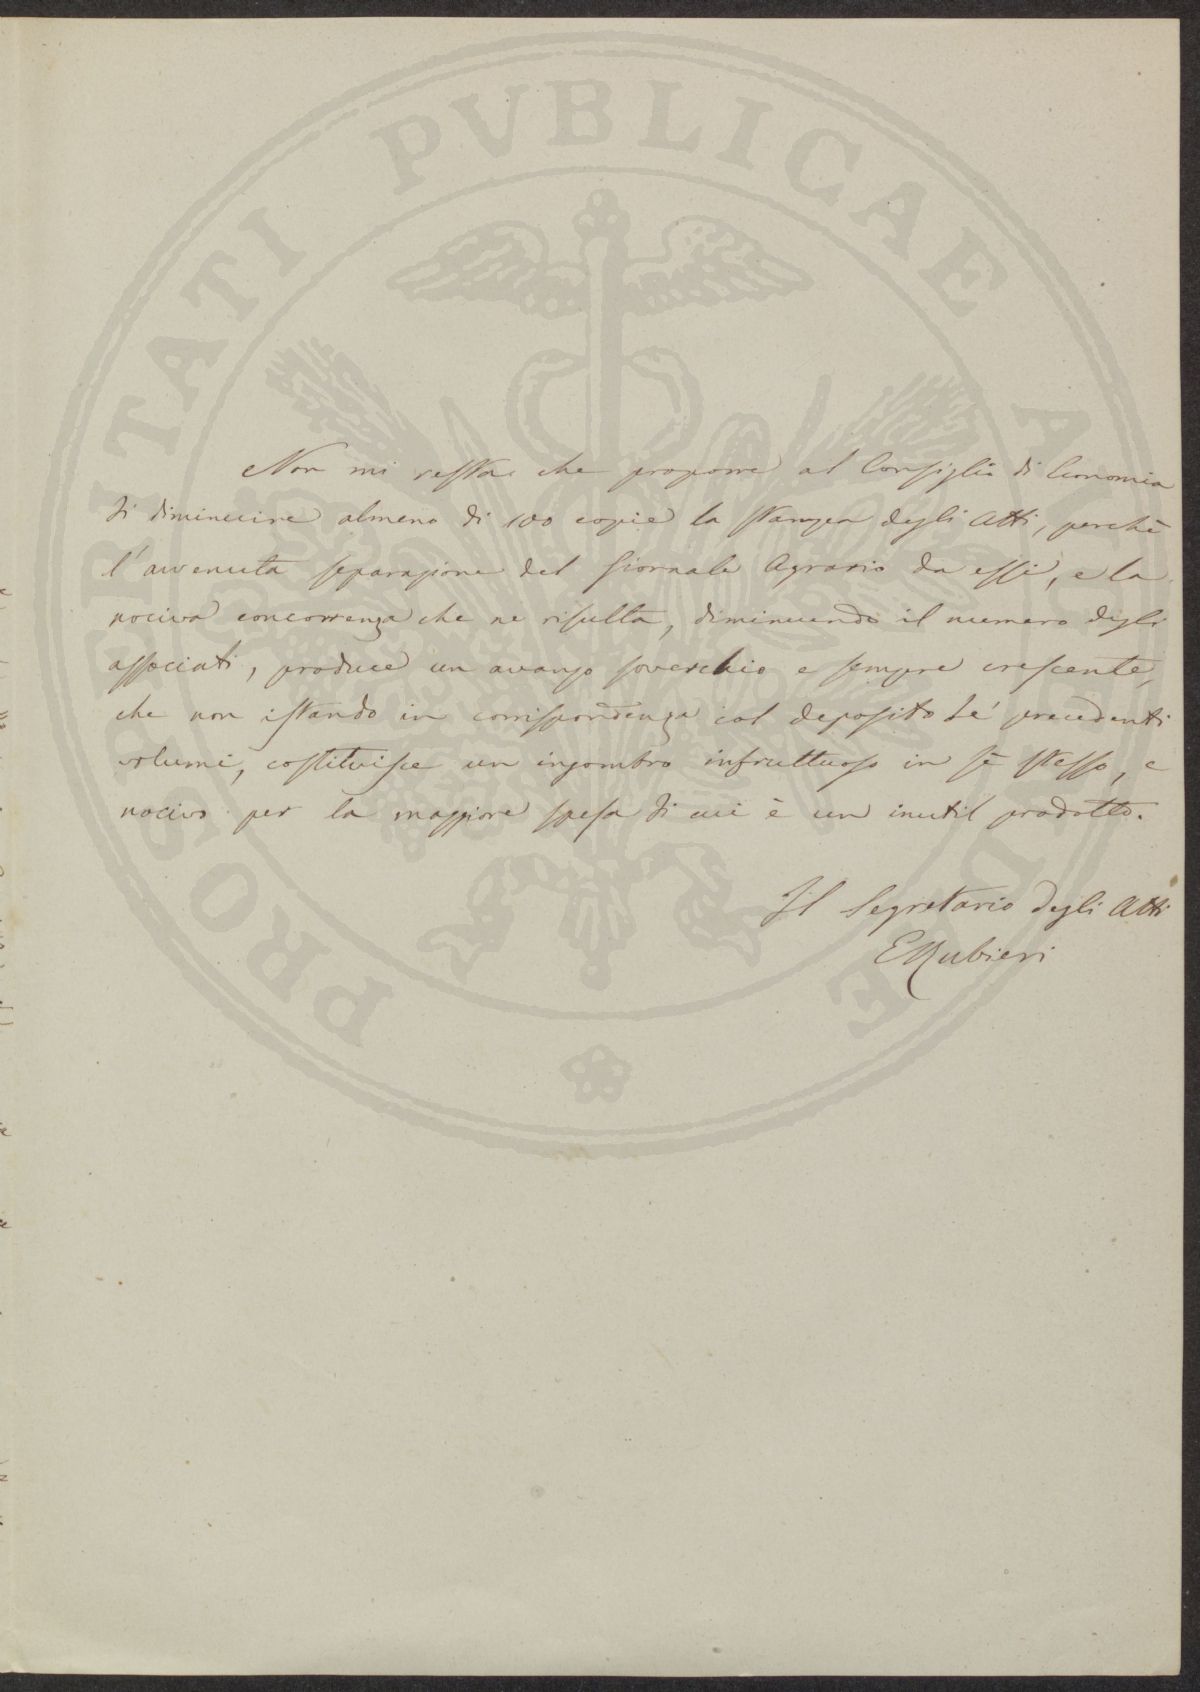 Non mi resta che proporre al Consiglio di Economia
di diminuire almeno di 100 copie la stampa degli Atti, perchè
l'avvenuta separazione del Giornale Agrario da essi, e la
nociva concorrenza che ne risulta, diminuendo il numero degli
associati, produce un avanzo soverchio e sempre crescente,
che non istando in corrispondenza col deposito de' precedenti
volumi, costituisce un ingombro infruttuoso in sè stesso, e
nocivo per la maggiore spesa di cui è un inutil prodotto.
Il Segretario degli Atti
E Rubieri
PROSPERITATI PVBLICAE AVGENDAE